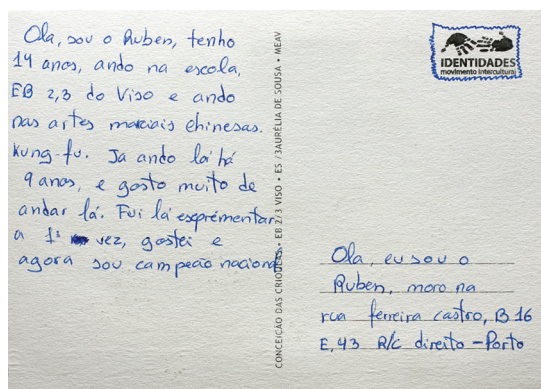 Ola, sou o Ruben, tenho
14 anos, ando na escola,
EB 2,3 do Viso e ando
nas artes marciais chinesas.
Kung-fu. Ja ando lá há
9 anos, e gosto muito de
andar lá. Fui lá esprementar
a 1ª vez, gostei e
agora sou campeão nacional
CONCEIÇÃO DAS CRIOULAS • EB 2/3 VISO • ES /3AURÉLIA DE SOUSA • MEAV
IDENTIDADES
movimento intercultural
Ola, eu sou o
Ruben, moro na
rua ferreira castro, B 16
E, 43 R/c direito - Porto